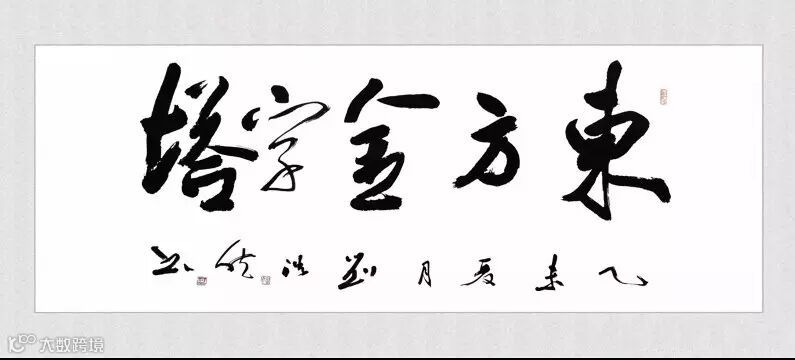 東方金字塔
乙未夏月劉
大数跨境